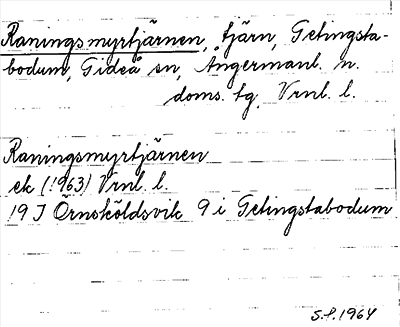 Raningsmyrtjärnen, tjärn, Getingsta-
bodum, Gideå sn, Ångermanl. n.
doms. tg, Vrnl. l.
Raningsmyrtjärnen
ek (1963) Vrnl. l.
19 J Örnsköldsvik 9 i Getingstabodum
S.f. 1964